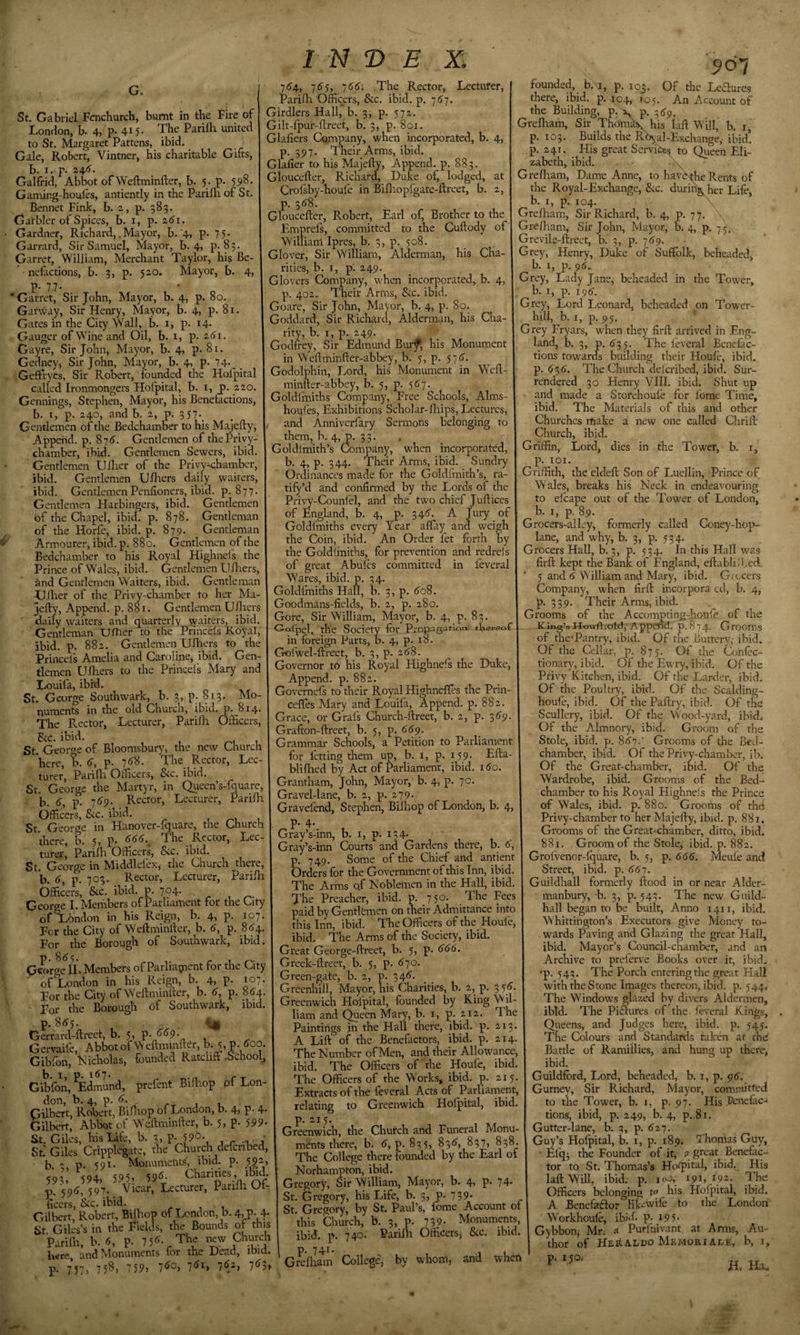 INDEX.
907
G.
St. Gabriel Fenchurch, burnt in the Fire of
London, b. 4, p. 415. The Parish united
to St. Margaret Pattens, ibid.
Gale, Robert, Vintner, his charitable Gifts,
b. 1. p. 246.
Galfrid, Abbot of Westminster, b. 5. p. 598.
Gaming-houses, antiently in the Parish of St.
Bennet Fink, b. 2, p. 383.
Garbler of Spices, b. 1, p. 261.
Gardner, Richard, Mayor, b. 4, p. 75.
Garrard, Sir Samuel, Mayor, b. 4, p. 83.
Garret, William, Merchant Taylor, his Be-
nefactions, b. 3, p. 520. Mayor, b. 4,
p. 77.
Garret, Sir John, Mayor, b. 4, p. 80.
Garway, Sir Henry, Mayor, b. 4, p. 81.
Gates in the City Wall, b. 1, p. 14.
Gauger of Wine and Oil, b. 1, p. 261.
Gayre, Sir John, Mayor, b. 4, p. 81.
Gedney, Sir John, Mayor, b. 4, p. 74.
Geffryes, Sir Robert, founded the Hospital
called Ironmongers Hospital, b. 1, p. 220.
Gennings, Stephen, Mayor, his Benefactions,
b. 1, p. 240, and b. 2, p. 357.
Gentlemen of the Bedchamber to his Majesty,
Append. p. 876. Gentlemen of the Privy-
chamber, ibid. Gentlemen Sewers, ibid.
Gentlemen Usher of the Privy-chamber,
ibid. Gentlemen Ushers daily waiters,
ibid. Gentlemen Pensioners, ibid. p. 877.
Gentlemen Harbingers, ibid. Gentlemen
of the Chapel, ibid. p. 878. Gentleman
of the Horse, ibid. p. 879. Gentleman
Armourer, ibid. p. 880. Gentlemen of the
Bedchamber to his Royal Highness the
Prince of Wales, ibid. Gentlemen Ushers,
and Gentlemen Waiters, ibid. Gentleman
Usher of the Privy-chamber to her Ma-
jesty, Append. p. 881. Gentlemen Ushers
daily waiters and quarterly waiters, ibid.
Gentleman Usher to the Princess Royal,
ibid. p. 882. Gentlemen Ushers to the
Princess Amelia and Caroline, ibid. Gen-
tlemen Ushers to the Princess Mary and
Louisa, ibid.
St. George Southwark, b. 3, p. 813. Mo-
numents in the old Church, ibid. p. 814.
The Rector, Lecturer, Parish Officers,
&c. ibid.
St. George of Bloomsbury, the new Church
here, b. 6, p. 768. The Rector, Lec-
turer, Parish Officers, &c. ibid.
St. George the Martyr, in Queen's-square,
b. 6, p. 769. Rector, Lecturer, Parish
Officers, &c. ibid.
St. George in Hanover-square, the Church
there, b. 5, p. 666. The Rector, Lec-
turer, Parish Officers, &c. ibid.
St. George in Middlesex, the Church there,
b. 6, p. 703. Rector, Lecturer, Parish
Officers, &c. ibid. p. 704.
George I. Members of Parliament for the City
of London in his Reign, b. 4, p. 107.
For the City of Westminster, b. 6, p. 864.
For the Borough of Southwark, ibid.
p. 865.
George II. Members of Parliament for the City
of London in his Reign, b. 4, p. 107.
For the City of Westminster, b. 6, p. 864.
For the Borough of Southwark, ibid.
p. 865.
Gerrard-street, b. 5, p. 669.
Gervaise, Abbot of Westminster, b. 5, p. 600.
Gibson, Nicholas, founded Ratcliff-School,
b. 1, p. 167.
Gibson, Edmund, present Bishop of Lon-
don, b. 4, p. 6.
Gilbert, Robert, Bishop of London, b. 4, p. 4.
Gilbert, Abbot of Westminster, b. 5, p. 599.
St. Giles, his Life, b. 3, p. 590.
St. Giles Cripplegate, the Church described,
b. 3, p. 591. Monuments, ibid. p. 592,
593, 594, 595, 596. Charities, ibid.
p. 596, 597. Vicar, Lecturer, Parish Of-
ficers, &c. ibid.
Gilbert, Robert, Bishop of London, b. 4, p. 4.
St. Giles's in the Fields, the Bounds of this
Parish, b. 6, p. 756. The new Church
here, and Monuments for the Dead, ibid.
p. 757, 758, 759, 760, 761, 762, 763,
764, 765, 766. The Rector, Lecturer,
Parish Officers, &c. ibid. p. 767.
Girdlers Hall, b. 3, p. 572.
Gilt-spur-street, b. 3, p. 801.
Glasiers Company, when incorporated, b. 4,
p. 397. Their Arms, ibid.
Glasier to his Majesty, Append. p. 883.
Gloucester, Richard, Duke of, lodged, at
Crosby-house in Bishopsgate-street, b. 2,
p. 368.
Gloucester, Robert, Earl of, Brother to the
Empress, committed to the Custody of
William Ipres, b. 3, p. 508.
Glover, Sir William, Alderman, his Cha-
rities, b. 1, p. 249.
Glovers Company, when incorporated, b. 4,
p. 402. Their Arms, &c. ibid.
Goare, Sir John, Mayor, b. 4, p. 80.
Goddard, Sir Richard, Alderman, his Cha-
rity, b. 1, p. 249.
Godfrey, Sir Edmund Bury, his Monument
in Westminster-abbey, b. 5, p. 576.
Godolphin, Lord, his Monument in West-
minster-abbey, b. 5, p. 567.
Goldsmiths Company, Free Schools, Alms-
houses, Exhibitions Scholar-ships, Lectures,
and Anniversary Sermons belonging to
them, b. 4, p. 33.
Goldsmith's Company, when incorporated,
b. 4, p. 344. Their Arms, ibid. Sundry
Ordinances made for the Goldsmith's, ra-
tify'd and confirmed by the Lords of the
Privy-Counsel, and the two chief Justices
of England, b. 4, p. 346. A Jury of
Goldsmiths every Year assay and weigh
the Coin, ibid. An Order set forth by
the Goldsmiths, for prevention and redress
of great Abuses committed in several
Wares, ibid. p. 34.
Goldsmiths Hall, b. 3, p. 608.
Goodmans-fields, b. 2, p. 280.
Gore, Sir William, Mayor, b. 4, p. 83.
Gospel, the Society for Propagation thereof
in foreign Parts, b. 4, p. 18.
Goswel-street, b. 3, p. 268.
Governor to his Royal Highness the Duke,
Append. p. 882.
Governess to their Royal Highnesses the Prin-
cesses Mary and Louisa, Append. p. 882.
Grace, or Grass Church-street, b. 2, p. 369.
Grafton-street, b. 5, p. 669.
Grammar Schools, a Petition to Parliament
for setting them up, b. 1, p. 159. Esta-
blished by Act of Parliament, ibid. 160.
Grantham, John, Mayor, b. 4, p. 70.
Gravel-lane, b. 2, p. 279.
Gravesend, Stephen, Bishop of London, b. 4,
p. 4.
Gray's-inn, b. 1, p. 134.
Gray's-inn Courts and Gardens there, b. 6,
p. 749. Some of the Chief and antient
Orders for the Government of this Inn, ibid.
The Arms of Noblemen in the Hall, ibid.
The Preacher, ibid. p. 750. The Fees
paid by Gentlemen on their Admittance into
this Inn, ibid. The Officers of the House,
ibid. The Arms of the Society, ibid.
Great George-street, b. 5, p. 666.
Greek-street, b. 5, p. 670.
Green-gate, b. 2, p. 346.
Greenhill, Mayor, his Charities, b. 2, p. 356.
Greenwich Hospital, founded by King Wil-
liam and Queen Mary, b. 1, p. 212. The
Paintings in the Hall there, ibid. p. 213.
A List of the Benefactors, ibid. p. 214.
The Number of Men, and their Allowance,
ibid. The Officers of the House, ibid.
The Officers of the Works, ibid. p. 215.
Extracts of the several Acts of Parliament,
relating to Greenwich Hospital, ibid.
p. 215.
Greenwich, the Church and Funeral Monu-
ments there, b. 6, p. 835, 836, 837, 838.
The College there founded by the Earl of
Norhampton, ibid.
Gregory, Sir William, Mayor, b. 4, p. 74.
St. Gregory, his Life, b. 3, p. 739.
St. Gregory, by St. Paul's, some Account of
this Church, b. 3, p. 739. Monuments,
ibid. p. 740. Parish Officers, &c. ibid.
p. 741.
Gresham College, by whom, and when
founded, b. 1, p. 103. Of the Lectures
there, ibid. p. 104, 105. An Account of
the Building, p. p. 369.
Gresham, Sir Thomas, his last Will, b. 1,
p. 103. Builds the Royal-Exchange, ibid.
p. 241. His great Services to Queen Eli-
zabeth, ibid.
Gresham, Dame Anne, to have the Rents of
the Royal-Exchange, &c. during her Life,
b. 1, p. 104.
Gresham, Sir Richard, b. 4, p. 77.
Gresham, Sir John, Mayor, b. 4, p. 75.
Grevile-street, b. 3, p. 769.
Grey, Henry, Duke of Suffolk, beheaded,
b. 1, p. 96.
Grey, Lady Jane, beheaded in the Tower,
b. 1, p. 196.
Grey, Lord Leonard, beheaded on Tower-
hill, b. 1, p. 95.
Grey Fryars, when they first arrived in Eng-
land, b. 3, p. 635. The several Benefac-
tions towards building their House, ibid.
p. 636. The Church described, ibid. Sur-
rendered 30 Henry VIII. ibid. Shut up
and made a Storehouse for some Time,
ibid. The Materials of this and other
Churches make a new one called Christ
Church, ibid.
Griffin, Lord, dies in the Tower, b. 1,
p. 101.
Griffith, the eldest Son of Luellin, Prince of
Wales, breaks his Neck in endeavouring
to escape out of the Tower of London,
b. 1, p. 89.
Grocers-alley, formerly called Coney-hop-
lane, and why, b. 3, p. 534.
Grocers Hall, b. 3, p. 534. In this Hall was
first kept the Bank of England, established
5 and 6 William and Mary, ibid. Grocers
Company, when first incorporated, b. 4,
p. 339. Their Arms, ibid.
Grooms of the Accompting-house of the
King's Houshold, Append. p. 874. Grooms
of the Pantry, ibid. Of the Buttery, ibid.
Of the Cellar, p. 875. Of the Confec-
tionary, ibid. Of the Ewry, ibid. Of the
Privy Kitchen, ibid. Of the Larder, ibid.
Of the Poultry, ibid. Of the Scalding-
house, ibid. Of the Pastry, ibid. Of the
Scullery, ibid. Of the Wood-yard, ibid.
Of the Almnory, ibid. Groom of the
Stole, ibid. p. 867. Grooms of the Bed-
chamber, ibid. Of the Privy-chamber, ib.
Of the Great-chamber, ibid. Of the
Wardrobe, ibid. Grooms of the Bed-
chamber to his Royal Highness the Prince
of Wales, ibid. p. 880. Grooms of the
Privy-chamber to her Majesty, ibid. p. 881.
Grooms of the Great-chamber, ditto, ibid.
881. Groom of the Stole, ibid. p. 882.
Grosvenor-square, b. 5, p. 666. Meuse and
Street, ibid. p. 667.
Guildhall formerly stood in or near Alder-
manbury, b. 3, p. 543. The new Guild-
hall began to be built, Anno 1411, ibid.
Whittington's Executors give Money to-
wards Paving and Glazing the great Hall,
ibid. Mayor's Council-chamber, and an
Archive to preserve Books over it, ibid.
p. 542. The Porch entering the great Hall
with the Stone Images thereon, ibid. p. 544.
The Windows glazed by divers Aldermen,
ibid. The Pictures of the several Kings,
Queens, and Judges here, ibid. p. 545.
The Colours and Standards taken at the
Battle of Ramillies, and hung up there,
ibid.
Guildford, Lord, beheaded, b. 1, p. 96.
Gurney, Sir Richard, Mayor, committed
to the Tower, b. 1, p. 97. His Benefac-
tions, ibid, p. 249, b. 4, p. 81.
Gutter-lane, b. 3, p. 627.
Guy's Hospital, b. 1, p. 189. Thomas Guy,
Esq; the Founder of it, a great Benefac-
tor to St. Thomas's Hospital, ibid. His
last Will, ibid. p. 191, 192. The
Officers belonging to his Hospital, ibid.
A Benefactor likewise to the London
Workhouse, ibid. p. 195.
Gybbon, Mr. a Pursuivant at Arms, Au-
thor of HERALDO MEMORIALE, b, 1,
p. 150.
H. HA.